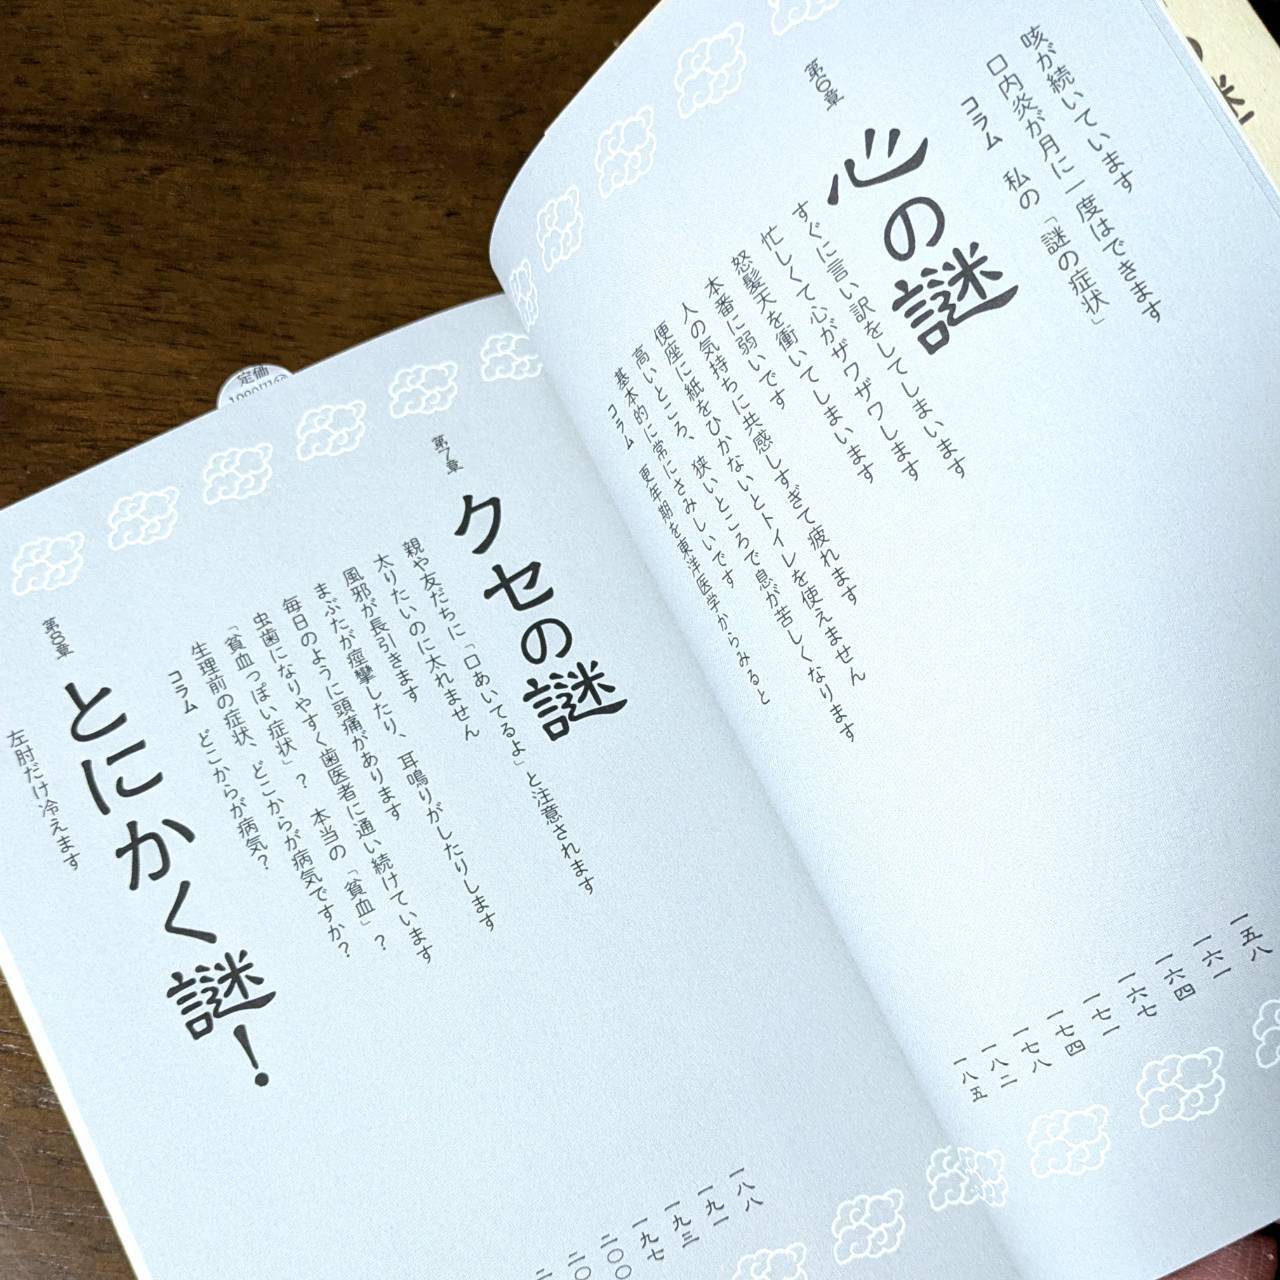 咳が続いています
口内炎が月に一度はできます
コラム 私の「謎の症状」
第6章
心の謎
すぐに言い訳をしてしまいます
忙しくて心がザワザワします
怒髪天を衝いてしまいます
本番に弱いです
人の気持ちに共感しすぎて疲れます
便座に紙をひかないとトイレを使えません
高いところ、狭いところで息が苦しくなります
基本的に常にさみしいです
コラム 更年期を東洋医学からみると
一五八
一六一
一六四
一六七
一七一
一七四
一七八
一八二
一八五
第7章
クセの謎
親や友だちに「口あいてるよ」と注意されます
太りたいのに太れません
風邪が長引きます
まぶたが痙攣したり、耳鳴りがしたりします
毎日のように頭痛があります
虫歯になりやすく歯医者に通い続けています
「貧血っぽい症状」? 本当の「貧血」?
生理前の症状、どこからが病気ですか?
コラム どこからが病気?
第8章
とにかく謎!
左肘だけ冷えます
一八八
一九一
一九三
一九七
二〇〇
定価
謎